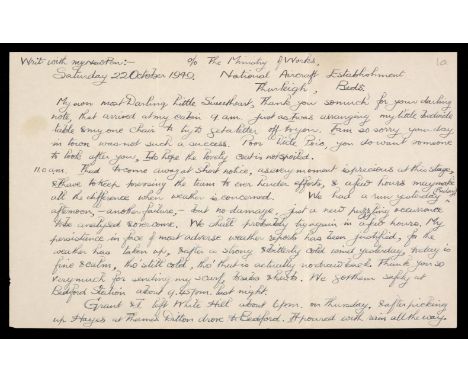 Write with my New Pen:- c/o The Ministry of Works, 10
Saturday 22 October 1949, National Aircraft Establishment
Thurleigh, Beds.
My own most Darling Little Sweetheart, Thank you so much for your darling
note, that arrived at my cabin 9 am. Just as I was arranging my little bedside
table & my one chair to try to get a letter off to you. I am so sorry your day
in town was not such a success. Poor little Fero, you do want someone
to look after you, I do hope the lovely coat is not spoiled.
11.0 am. Had to come away at short notice, as every moment is precious at this stage,
& I have to keep forcing the team to ever harder efforts, & a few hours may make
all the difference when weather is concerned. We had a run yesterday (Friday)
afternoon, - another failure, - but no damage, just a new puzzling occurrence
to be analysed & overcome. We shall probably try again in a few hours, My
persistence in face of most adverse weather reports has been justified, for the
weather has taken up, & after a strong & bitterly cold wind yesterday, today is
fine & calm, tho' still cold, tho' that is actually no drawback. Thank you so
very much for sending my scarf, & shirts. We got them safely at
Bedford Station about 9.45 pm. last night.
Grant & I left White Hill about 6 pm. on Thursday, & after picking
up Hayes at Thames Ditton drove to Bedford. It poured with rain all the way.